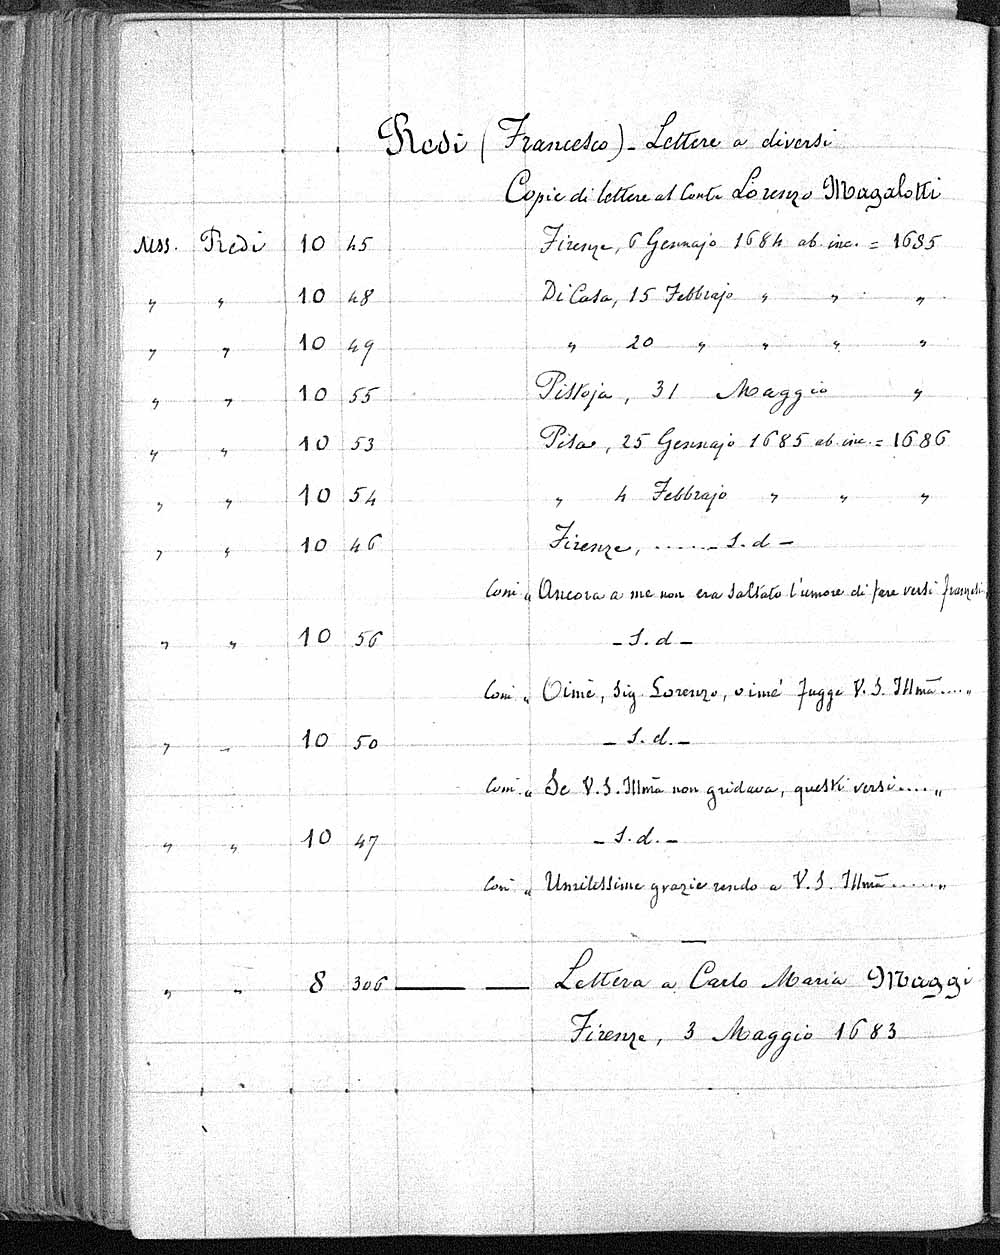 Redi (Francesco) - Lettere a diversi
Copie di lettere al Conte Lorenzo Magalotti
Mss. Redi 10 45 Firenze, 6 Gennajo 1684 ab inc. = 1685
" " 10 48 Di Casa, 15 Febbrajo " " "
" " 10 49 " 20 " " " "
" " 10 55 Pistoja, 31 Maggio "
" " 10 53 Pisa, 25 Gennajo 1685 ab inc. = 1686
" " 10 54 " 4 Febbrajo " " "
" " 10 46 Firenze, ...... - S. d -
Com. " Ancora a me non era saltato l'umore di fare versi franzesi "
" " 10 56 - S. d -
Com. " Oimè, Sig. Lorenzo, oimè fugge V. S. Illmã .... "
" " 10 50 - S. d. -
Com. " Se V. S. Illmã non gridava, questi versi .... "
" " 10 47 - S. d. -
Com. " Umilissime grazie rendo a V. S. Illmã ..... "
" " 8 306 — — Lettera a Carlo Maria Maggi
Firenze, 3 Maggio 1683